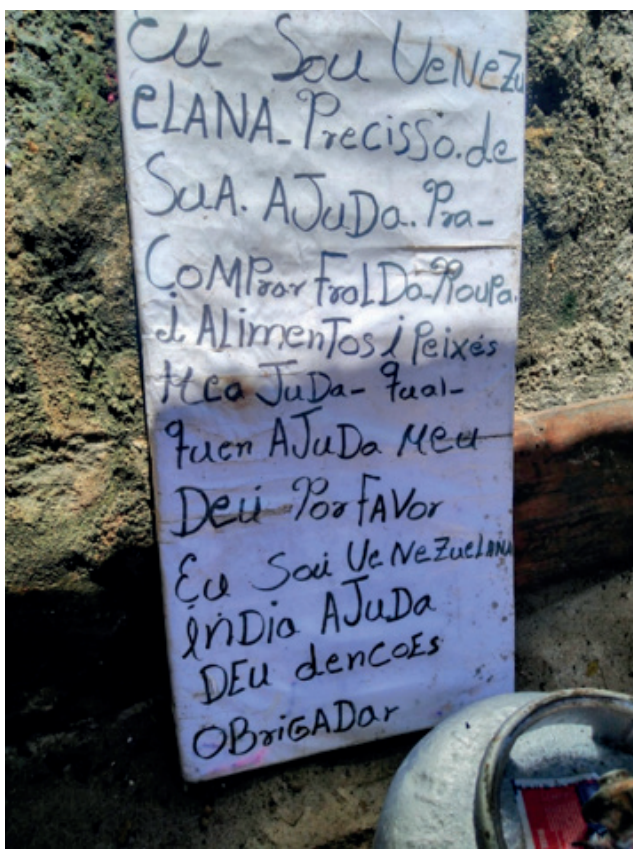 Eu Sou VeNeZu
eLANA_Precisso.de
SuA. AJuDa. Pra_
CoMPrar FroLDa_Roupa.
i ALimenTos i Peixes
Mea JuDa_ qual_
quer AJuDa Meu
Deu Por FAVor
Eu Sou VeNeZueLANA
iNDia AJuDa
DEu dencoEs
OBriGADar